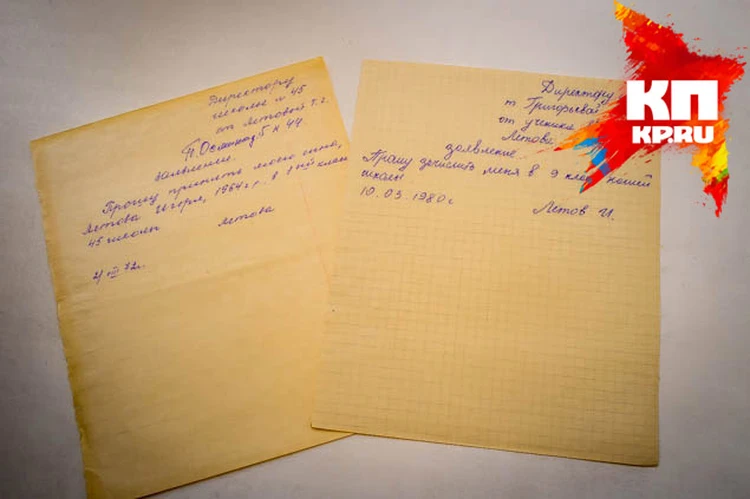 Директору
школы № 45
от Летовой Т.Г.
п. Осминина 5 к 44
заявление.
Прошу принять моего сына,
Летова Игоря, 1964 г.р. в 1ый класс
45 школы
Летова
2/ III 72г.
Директору
т Григорьевой
от ученика
Летова
заявление
Прошу зачислить меня в 9 класс вашей
школы
10.03.1980 г
Летов И.
КП
KP.RU